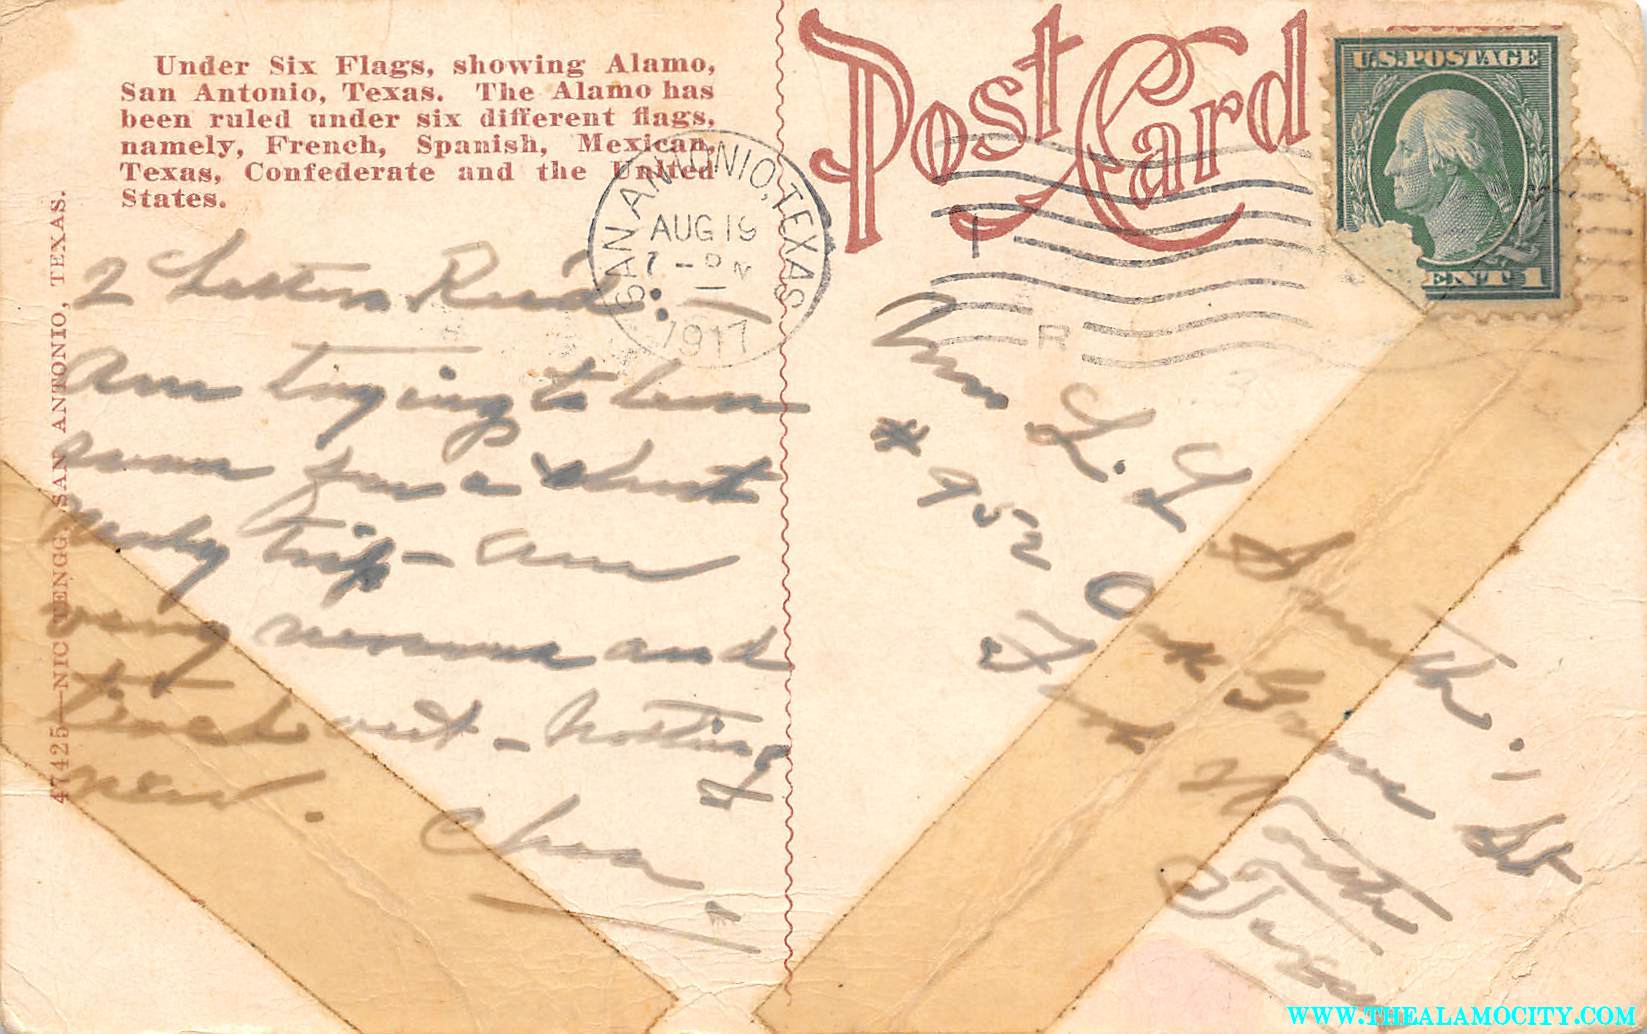 Under Six Flags, showing Alamo,
San Antonio, Texas. The Alamo has
been ruled under six different flags,
namely, French, Spanish, Mexican,
Texas, Confederate and the United
States.
47425—NIC TENGG, SAN ANTONIO, TEXAS.
2 Letters Recd. —
Am trying to
for a short
trip — am
very nervous and
tired out — Nothing
new.
Chas
Post Card
SAN ANTONIO, TEXAS
AUG 19
7 - PM
1917
1
R
U.S. POSTAGE
CENT 1
Mrs L. L. Smith. —
# 952 Oak Grove St
Fort Worth
Texas
WWW.THEALAMOCITY.COM